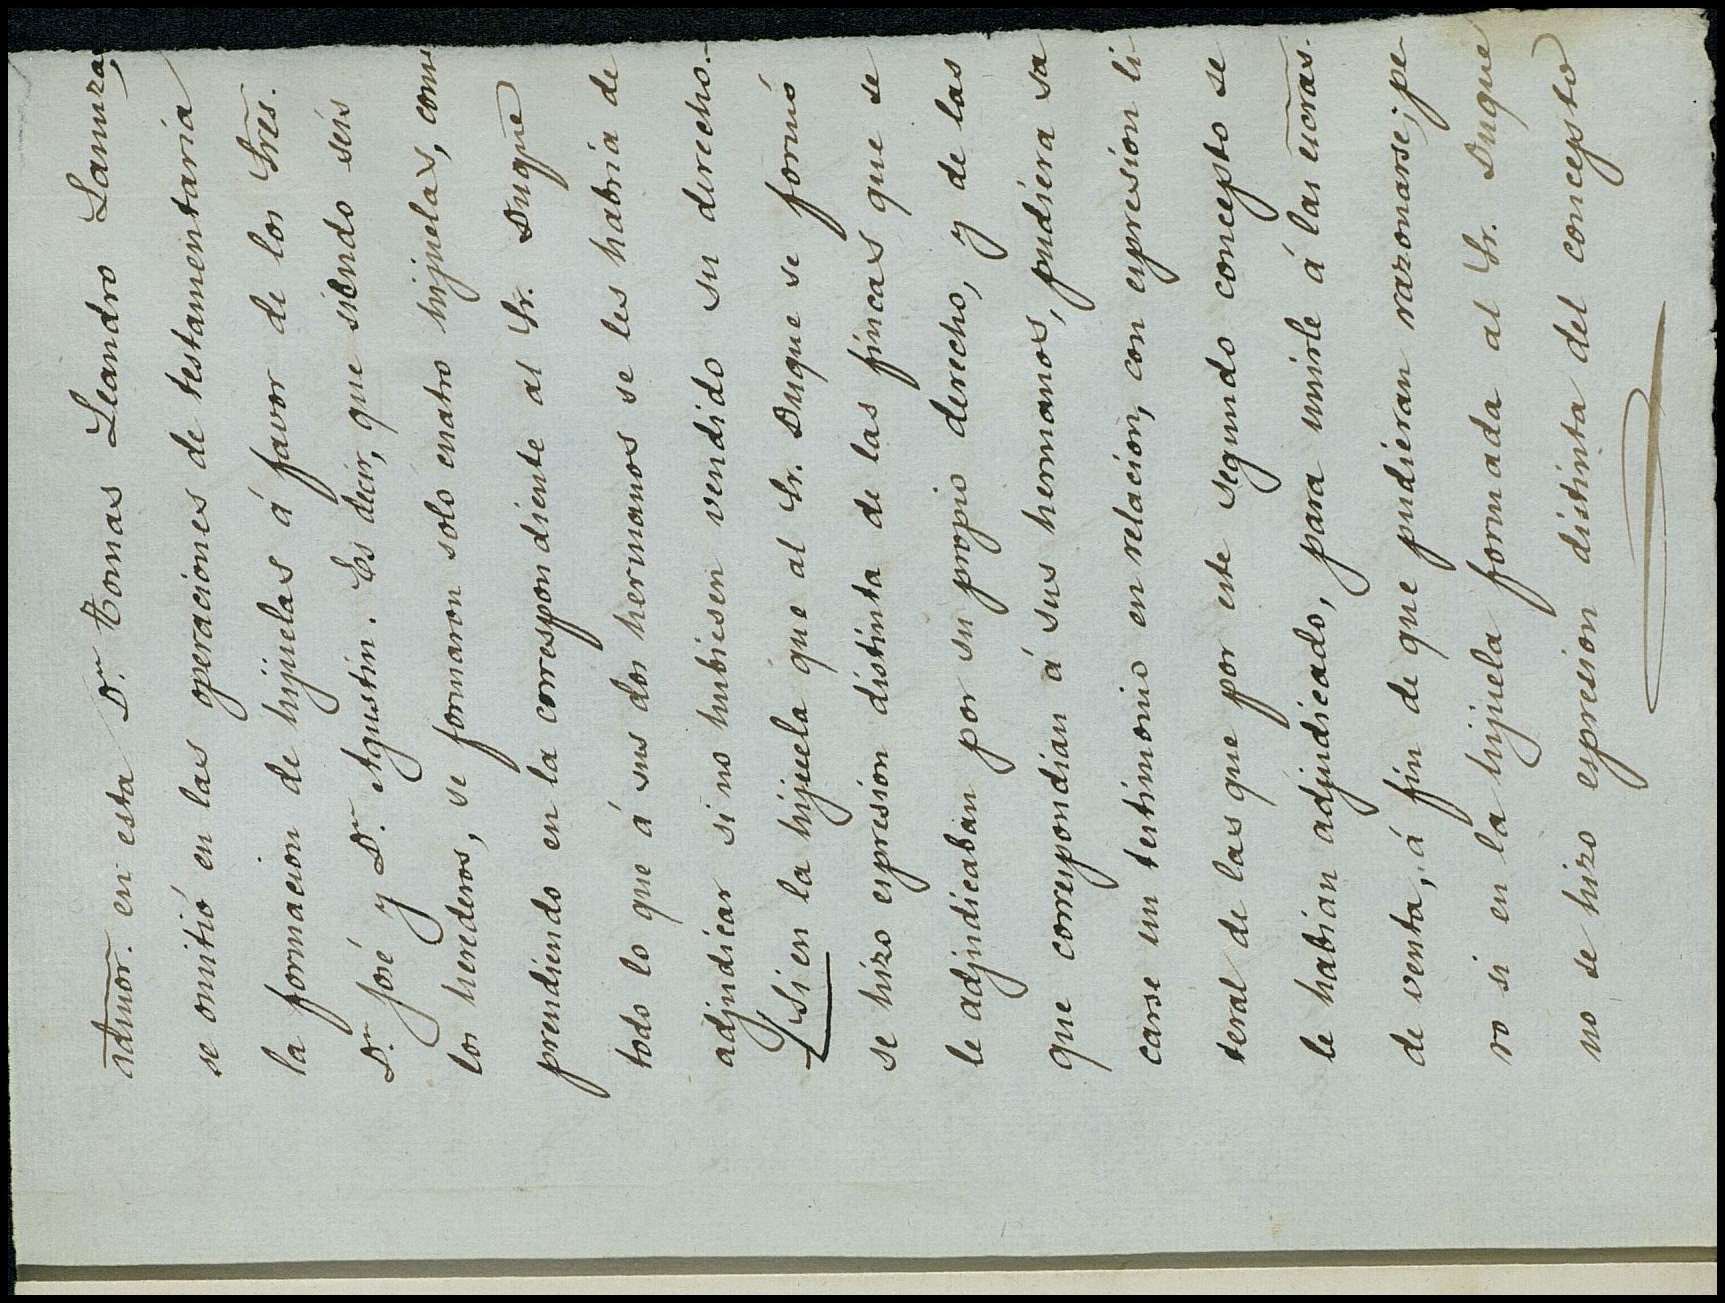 admor. en esta Dn. Tomas Leandro Lanuza,
se omitió en las operaciones de testamentaria
la formacion de hijuelas á favor de los Sres.
Dn. José y Dn. Agustin. Es decir, que siendo seis
los herederos, se formaron solo cuatro hijuelas, com
prendiendo en la correspondiente al Sr. Duque
todo lo que á sus dos hermanos se les habria de
adjudicar si no hubiesen vendido su derecho.
Si en la hijuela que al Sr. Duque se formó
se hizo espresion distinta de las fincas que se
le adjudicaban por su propio derecho, y de las
que correspondian á sus hermanos, pudiera sa
carse un testimonio en relacion, con espresion li
teral de las que por este segundo concepto se
le habian adjudicado, para unirle á las
de venta, á fin de que pudieran razonarse; pe
ro si en la hijuela formada al Sr. Duque
no se hizo espresion distinta del concepto